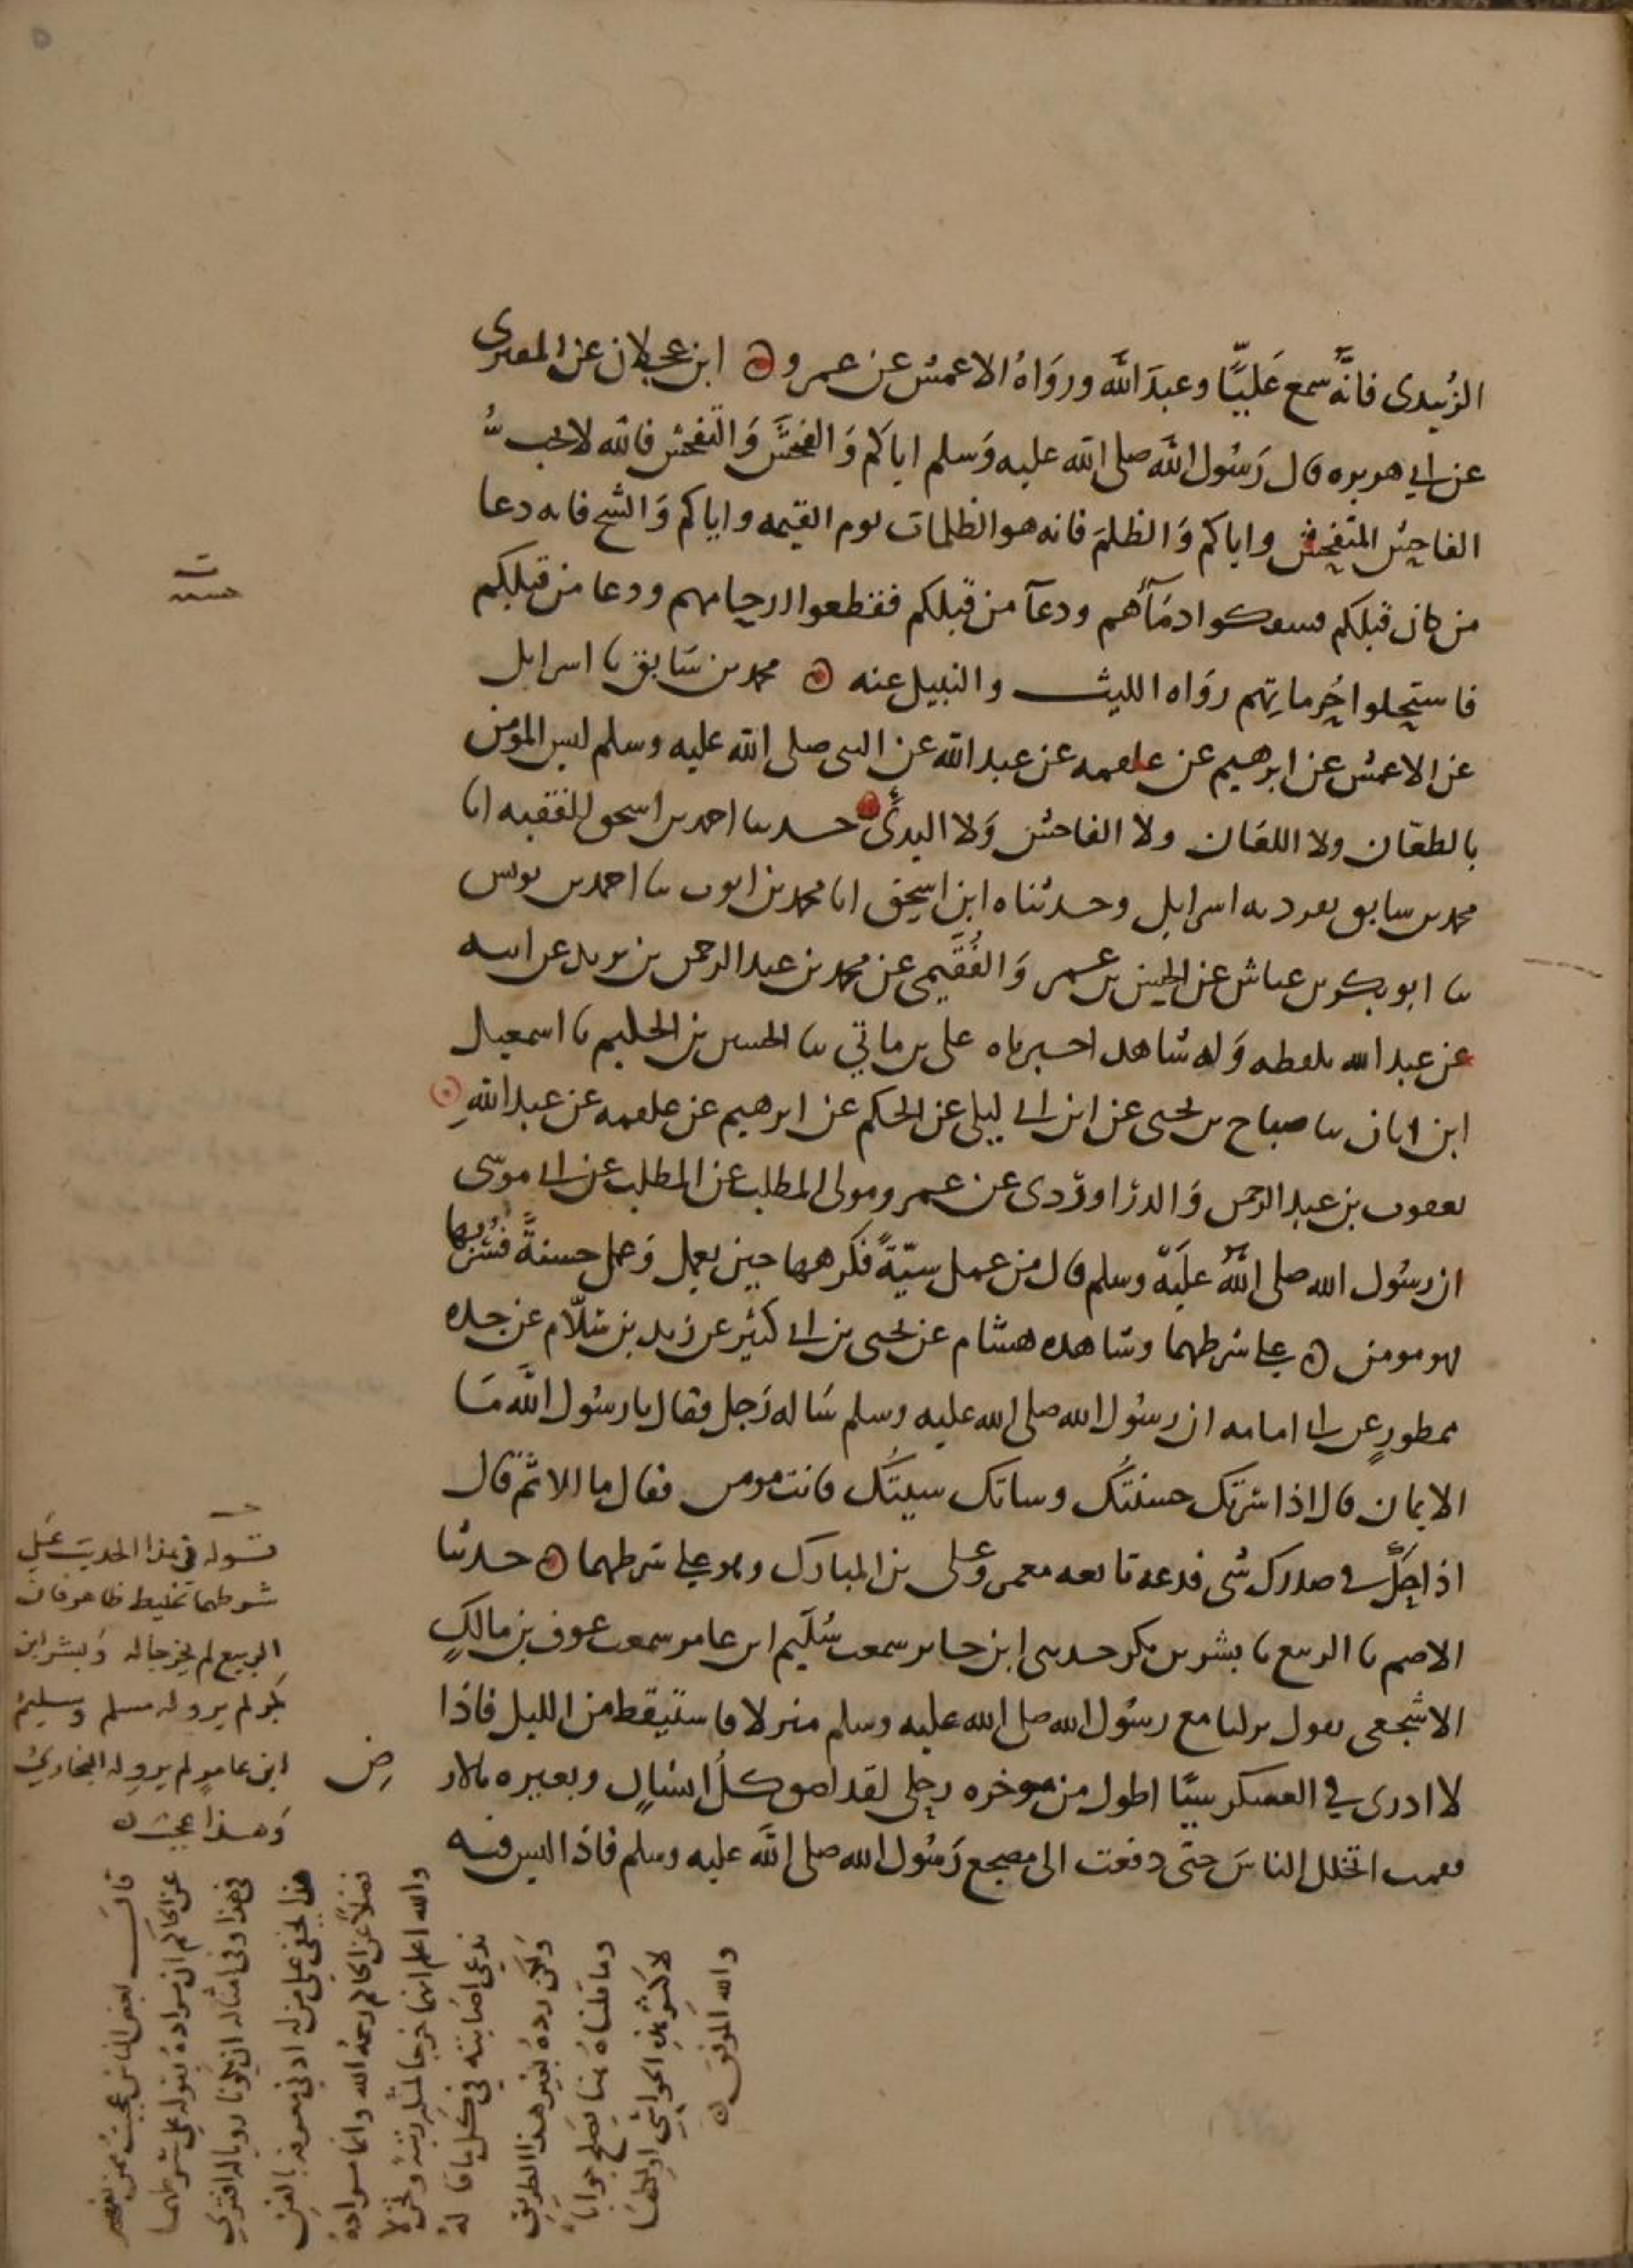 الزُبيدى فانَّه سمع عَليًّا وعبدَ الله ورَوَاهُ الاعمش عن عمرو ه ابن عجلان عن المقبرى
عن ابي هريره قال رَسُول الله صلى الله عليه وَسلم اياكم وَالفحشَ وَالتفحش فان الله لا يحب
الفاحِش المتفحِش واياكم وَالظلمَ فانه هو الظلمات يوم القيمه واياكم وَالشح فانه دعا
من كان قبلكم فسفكوا دمَآهم ودعآ من قبلكم فقطعوا ارحامهم ودعا من قبلكم
فاستحلوا حُرماتِهم روَاه الليث والنبيل عنه ه محمد بن سَابق نا اسرايل
عن الاعمش عن ابرهيم عن علقمه عن عبد الله عن النبى صلى الله عليه وسلم ليس المؤمن
بالطعّان ولا اللعَان ولا الفاحش وَلا البذىّ حدثنا احمد بن اسحق الفقيه انا
محمد بن سابق تفرد به اسرايل وحدثناه ابن اسحق انا محمد بن ايوب ثنا احمد بن يونس
ثنا ابو بكر بن عياش عن الحسن بن عمرو الفُقَيمى عن محمد بن عبد الرحمن بن يزيد عن ابيه
عن عبد الله بلفظه وَله شاهد اخبرناه على بن ماتي ثنا الحسين بن الحكم نا اسمعيل
ابن ابان ثنا صباح بن يحيى عن ابن ابي ليلى عن الحكم عن ابرهيم عن علقمه عن عبد اللهِ
يعقوب بن عبد الرحمن وَالدرَاورْدى عن عمرو مولى المطلب عن المطلب عن ابي موسَى
ان رسُول الله صلى اللهُ علَيه وسلم قال من عمل سيّةً فكرهها حين يعمل وَعمل حسنةً فسُرّ بها
فهو مومن ه على شرطهما وشاهده هشام عن يحيى بن ابي كثير عن زيد بن سَلّام عن جده
ممطورٍ عن ابي امامه ان رسُول الله صلى الله عليه وسلم سَاله رَجل فقال يا رسُول الله مَا
الايمان قال اذا سَرتك حسنتُك وساتك سيتُك فانت مومن فقال ما الاثم قال
اذا حَكَّ في صدرك شى فدعه تابعه معمر وَعلى بن المبارك وهو على شرطهما ه حدثنا
الاصم نا الربيع نا بشر بن بكر حدثنى ابن جابر سمعت سُلَيم ابن عامر سمعت عوف بن مالكٍ
الاشجعى يقول نزلنا مع رسُول الله صلى الله عليه وسلم منزلا فاستيقظ من الليل فاذا
لا ادرى في العسكر شيًا اطول من موخره رحلى لقد لصق كل انسانٍ وبعيره بالارض
فقمت اتخلل الناسَ حتى دفعت الى مضجع رَسُول الله صلى الله عليه وسلم فاذا ليس فيه
قوله في هذا الحديث عَلى
شرطهما تخليط ظاهر فان
الربيع لم يخرجا له وَبشر ابن
بكر لم يرو له مسلم وسليم
ابن عامرٍ لم يروِ له البخاريُّ
وَهذا عجب ه
قالَ بعض الناس عجبتُ ممن
عن الحاكم ان مرادهُ بقوله على شرطهما
في هذا وفي امثاله ان يكونا رويا له
هذا يخفى على من له ادنى معرفه بالفن
فضلًا عن الحاكم رحمهُ الله وانما مراده
والله اعلم انهما خرجا لمثل
ندعى اصَابته في كل ما قاله
وَلكن رده بغير هذا الطريق
وما قلناه هنا يصلح جوابًا
لاكثر هذِ الحواشي
والله الموفق ه